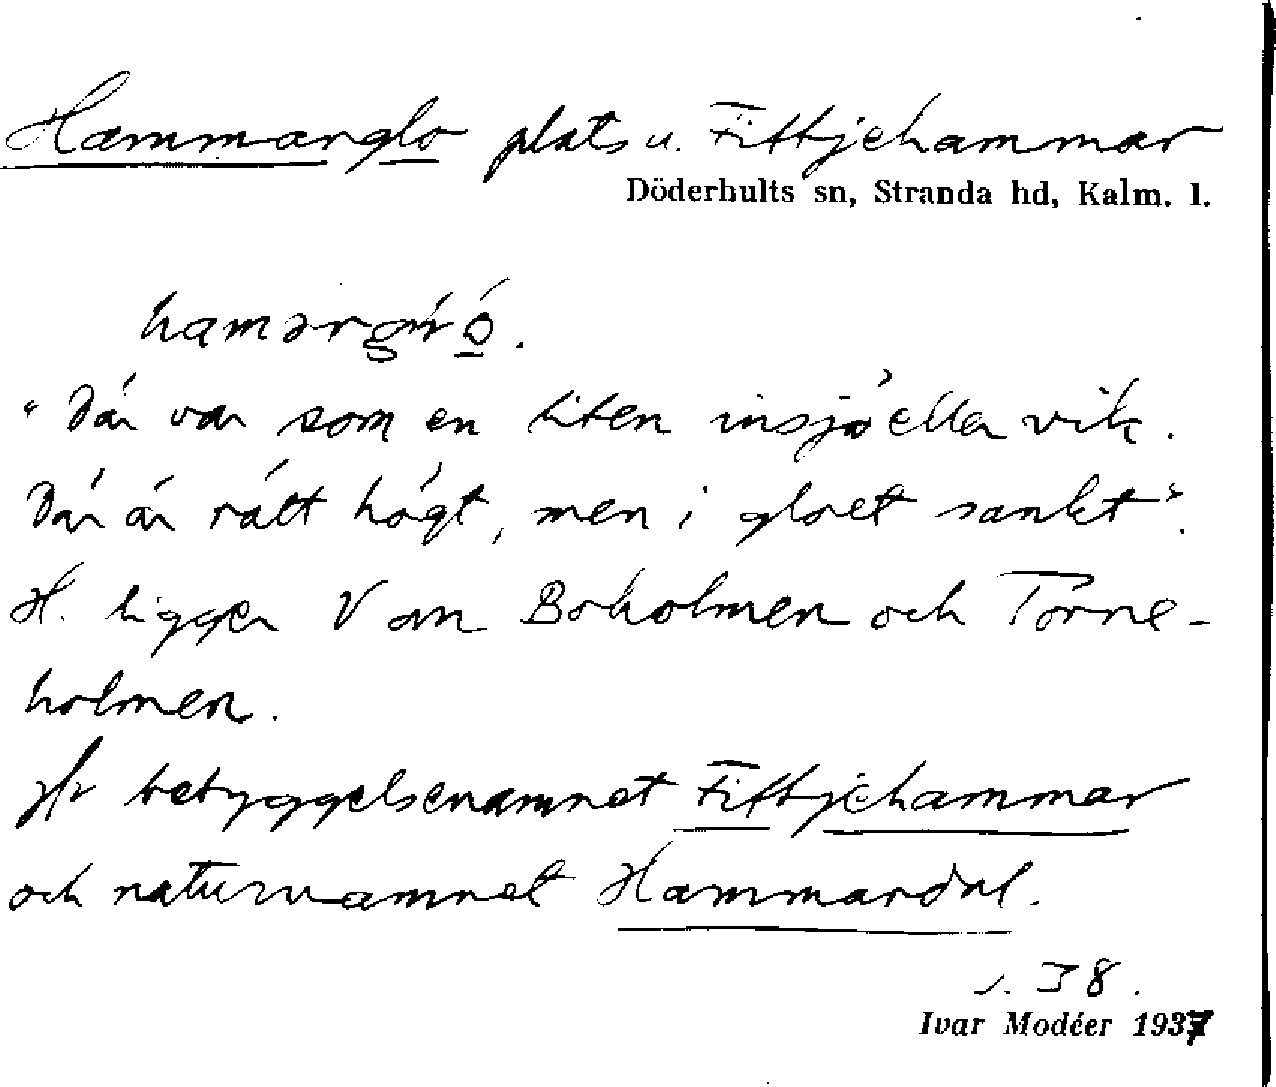 Hammarglo plats u. Fittjehammar
Döderhults sn, Stranda hd, Kalm. l.
"Där var som en liten insjö eller vik.
Där är rätt högt, men i gloet sankt".
H. ligger V om Boholmen och Torne-
holmen.
Jfr bebyggelsenamnet Fittjehammar
och naturnamnet Hammardal.
s. 38.
Ivar Modéer 1937